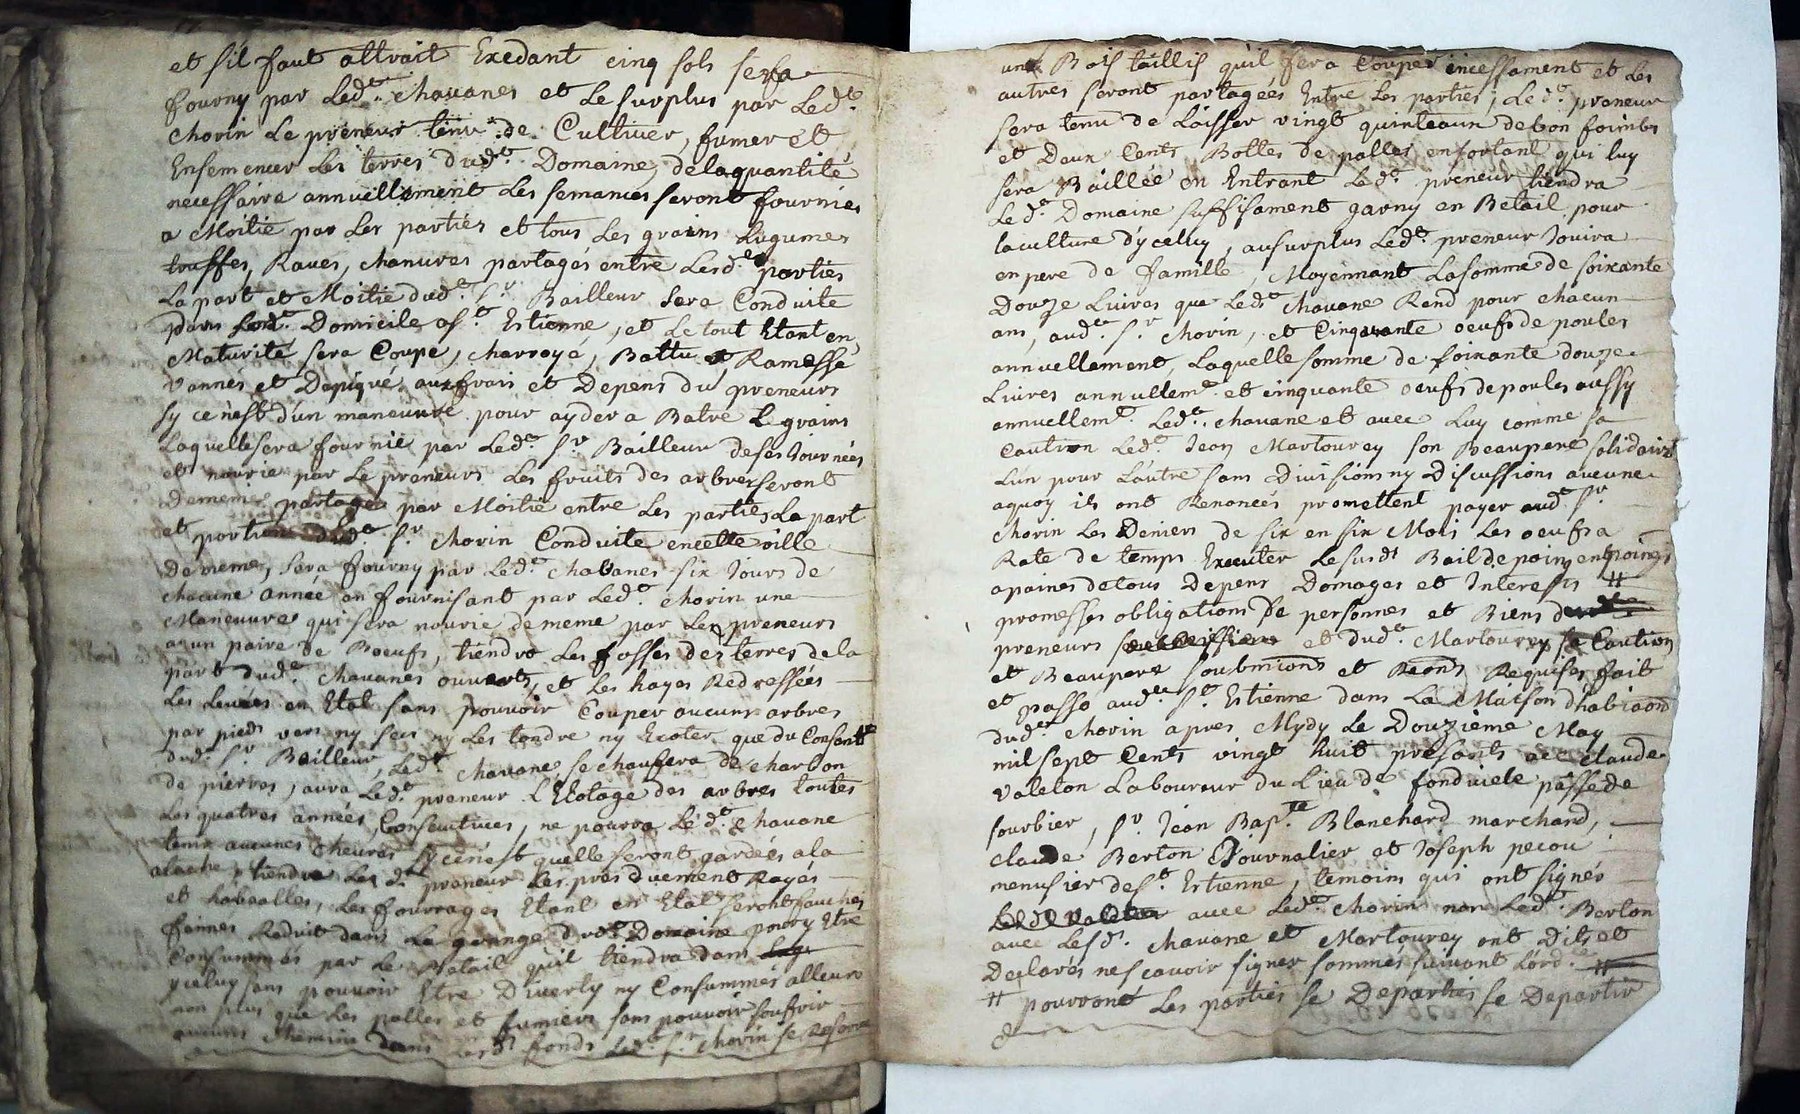 et s'il faut attrait Exedant cinq sols sera
fourny par Led.t chauanes et Le surplus par Led.t
chorin Le preneur tenu de Cultiver, fumer et
Ensemencer Les terres dud.t Domaine, de la quantité
necessaire annuellement Les semances seront fournies
a Moitié par Les parties et tous Les grains Legumes
truffes, Raues, chanures partagés entre Lesd.t parties
La part et Moitié dud.t S.r Bailleur sera Conduite
dans sond.t Domicile a S.t Estienne, et Le tout Etant en
Maturité sera Coupé, charroyé, Battu et Ramassé
Vannés et Dépiqué aux frais et Depens du preneurs
sy ce n'est d'un maneuure pour ayder a Batre L grains
Laquelle sera fournie par Led.t S.r Bailleur de ses Journées
et nourie par Le preneurs Les fruits des arbres seront
de meme partagé par Moitié entre Les parties La part
et portion dud.t S.r chorin Conduite en cette ville
de meme, sera fourny par Led.t chabanes six Jours de
chacune année en fournisant par Led.t chorin une
Maneuure qui sera nourie de meme par Les preneurs
a un paire de Boeufs, tiendra Les fosses des terres de la
part dud.t chauanes ouverts, et Les hayes Redressées
Les Leuées en Etat sans pouvoir Couper aucuns arbres
par pieds vers ny secs ny Les tondre ny Ecoter que du Consent.t
dud.t S.r Bailleur, Led.t chauane se chaufera de charbon
de pierres, aura Led.t preneur L'Ecotage des arbres toutes
Les quatres années Consecutiues, ne pourra Led.t chauane
tenir aucunes cheures sy ce n'est quelle seront gardées a la
atache, tiendra Led.t preneur Les prés duement Rayés
et Les fourrages Etant en Etat seront fauchés
fannés Reduit dans La grange dud.t Domaine pour y Etre
Consummés par Le Betail qu'il tiendra dans
yceluy sans pouvoir Etre Diverty ny Consummés alleurs
non plus que Les palles et fumiers sans pouvoir souffrir
aucuns chemins dans Lesd.t fonds Led.t S.r chorin se Reserve
une Bois taillis qu'il fera Couper incessament et Les
autres seront partagées Entre Les parties, Led.t preneur
sera tenu de Laisser vingt quinteaux de bon foin
et Deux Cents Bottes de palles en sortant qui luy
sera Baillée en Entrant Led.t preneur tiendra
Led.t Domaine suffisament garny en Betail pour
la culture d'yceluy, au surplus Led.t preneur Jouira
en pere de famille, Moyennant La somme de soixante
Douze Liures que Led.t chauane Rend pour chacun
ans, aud.t S.r chorin, et Cinquante oeufs de poules
annuellement, Laquelle somme de soixante douze
Liures annullem.t et cinquante oeufs de poules aussy
annuellem.t Led.t chauane et avec Luy comme sa
Caution Led.t Jean Martourey son Beaupere solidaire
L'un pour L'autre sans Diuisions ny Discussions aucune
a quoy ils ont Renoncés promettent payer aud.t S.r
chorin Les Deniers de six en six Mois Les oeufs a
Rate de temps Executer Le susd.t Bail de poins en poins
a paines de tous Depens Domages et Interests #
promesses obligations de personnes et Biens
preneurs et dud.t Martourey sa Caution
et Beaupere soubmions et Reons Requises fait
et passo aud.t S.t Estienne dans La Maison d'habiaon
dud.t chorin apres Mydy Le Douzieme May
mil sept Cents vingt huit presants Claude
valeton Laboureur du Lieu de fonduiele p̃sse de
sourbier, S.r Jean Bap.te Blanchard marchand,
claude Berton Journalier et Joseph pecou
menusier de S.t Estienne, temoins qui ont signés
avec Led.t chorin non Led.t Berton
avec Lesd.t chauane et Martourey ont Dits et
Declarés ne scavoir signer sommés suivant L'ord.ce
# pourront Les parties se Departir